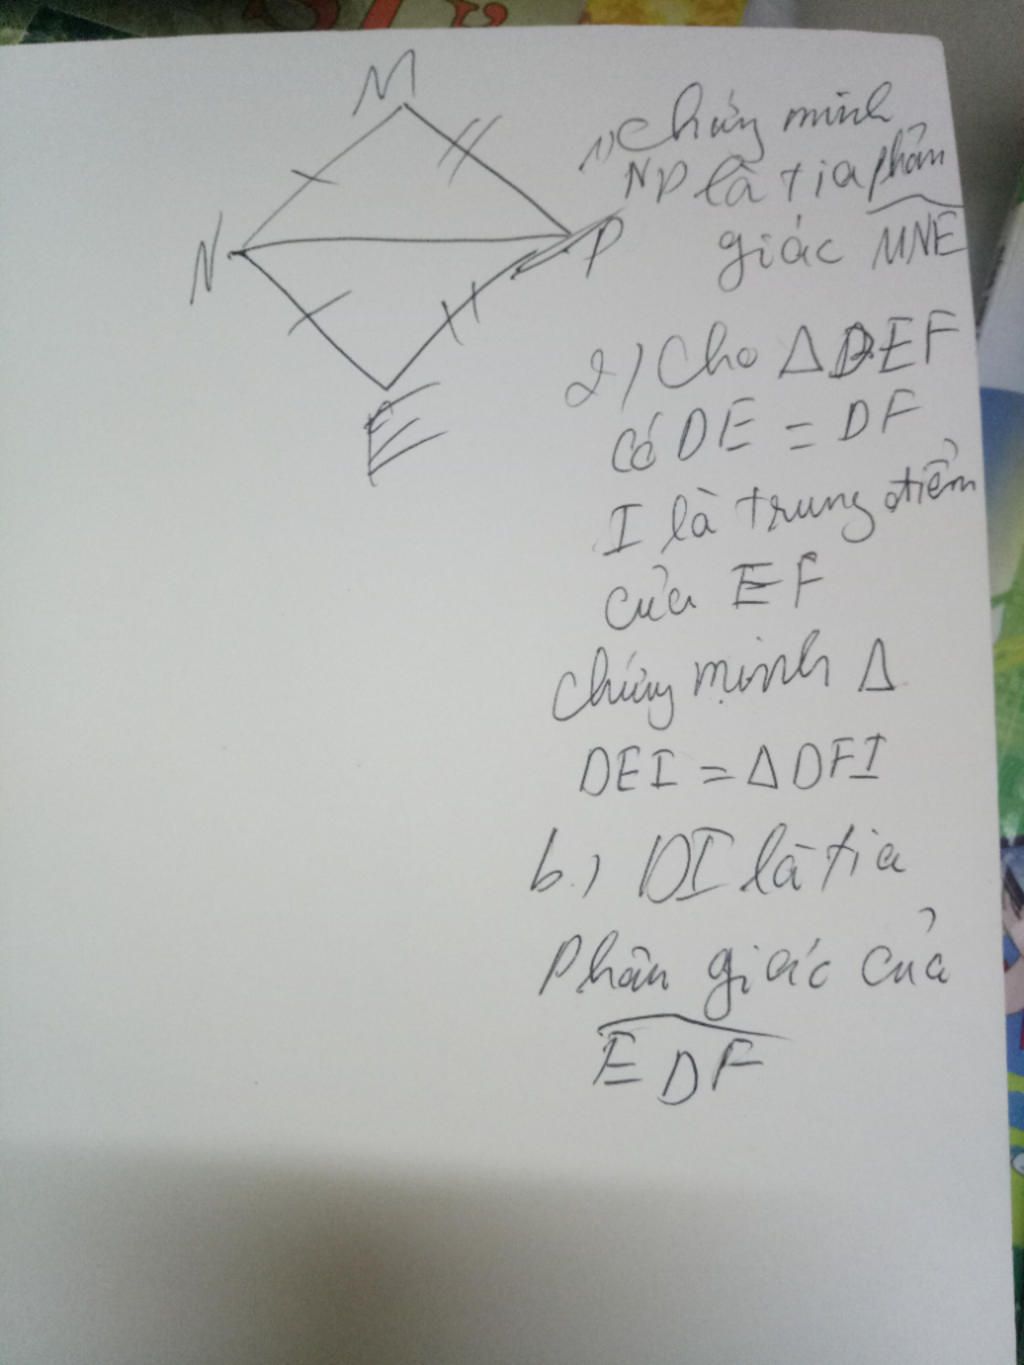 M
N
P
E
1) Chứng minh
NP là tia phân
giác MNE
2) Cho Δ DEF
có DE = DF
I là trung điểm
của EF
Chứng minh Δ
DEI = Δ DFI
b.) DI là tia
Phân giác của
EDF